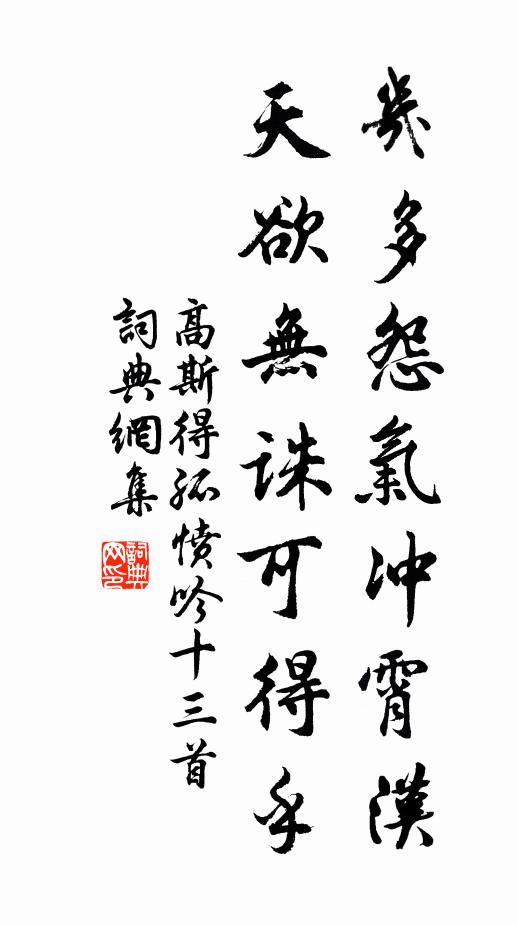 幾多怨氣沖霄漢
天欲無誅可得乎
高斯得孤憤吟十三首
詞典網集
詞典
网印